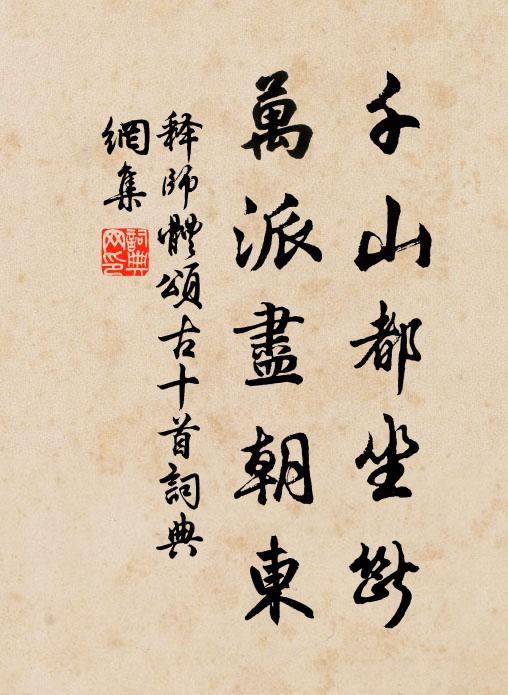 千山都坐斷
萬派盡朝東
释師體頌古十首詞典
網集
詞典
网印